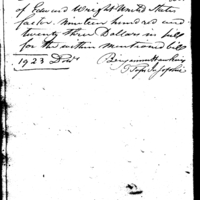 of Edward Wright United States
factor. Nineteen hundred and
twenty three Dollars in full
for the within mentioned bill
1923 Dolrs Benjamin Hawkins